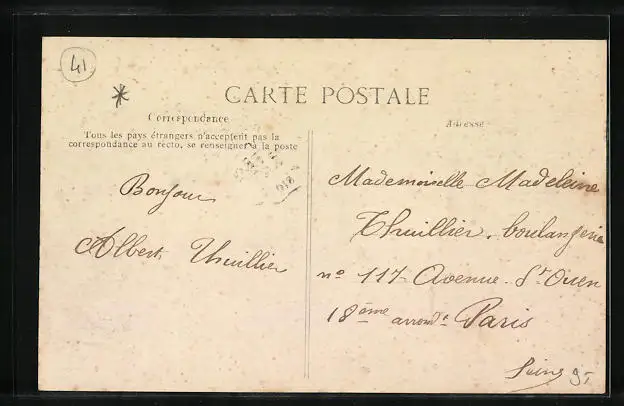 41
*
CARTE POSTALE
Correspondance
Tous les pays étrangers n'acceptent pas la
correspondance au recto, se renseigner à la poste
Bonjour
Albert Thuillier
Adresse
Mademoiselle Madeleine
Thuillier. boulangerie
n° 117 Avenue St Ouen
18ème arrondt Paris
Seine